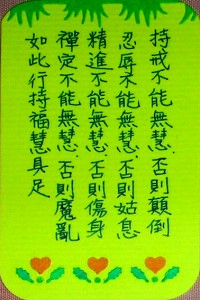 持戒不能無慧.否則顛倒
忍辱不能無慧.否則姑息
精進不能無慧.否則傷身
禪定不能無慧.否則魔亂
如此行持福慧具足